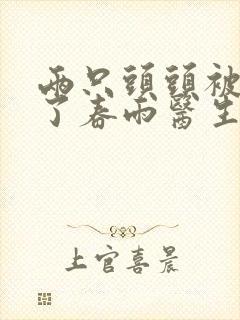 兩只頭頭被
了春雨醫生
上官喜晨